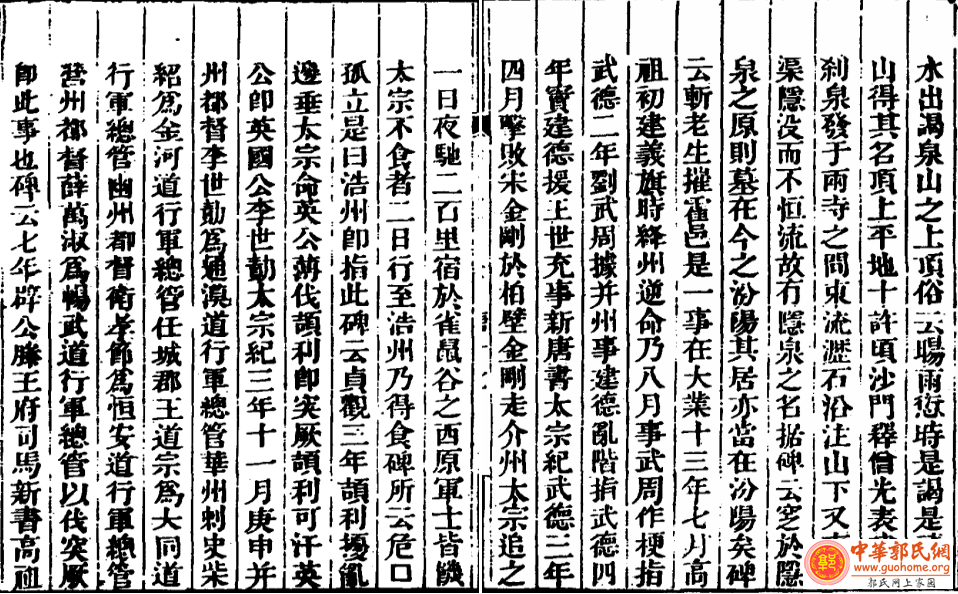 水出謁泉山之上頂俗云暘雨愆時是謁是
山得其名頂上平地十許頃沙門釋僧光表
刹泉發于兩寺之間東流瀝石沿注山下又
渠隱没而不恒流故有隱泉之名据碑云窆於隱
泉之原則墓在今之汾陽其居亦當在汾陽矣碑
云斬老生摧霍邑是一事在大業十三年七月高
祖初建義旗時絳州逆命乃八月事武周作梗指
武德二年劉武周據并州事建德亂階指武德四
年竇建德援王世充事新唐書太宗紀武德三年
四月擊敗宋金剛於柏壁金剛走介州太宗追之
一日夜馳二百里宿於雀鼠谷之西原軍士皆饑
太宗不食者二日行至浩州乃得食碑所云危口
孤立是曰浩州卽指此碑云貞觀三年頡利擾亂
邊垂太宗命英公薄伐頡利卽突厥頡利可汗英
公卽英國公李世勣太宗紀三年十一月庚申并
州都督李世勣爲通漠道行軍總管華州刺史柴
紹爲金河道行軍總管任城郡王道宗爲大同道
行軍總管幽州都督衛孝節爲恒安道行軍總管
營州都督薛萬淑爲暢武道行軍總管以伐突厥
卽此事也碑云七年辟公滕王府司馬新書高祖
中華郭氏網
www.guohome.org
郭氏网上家园